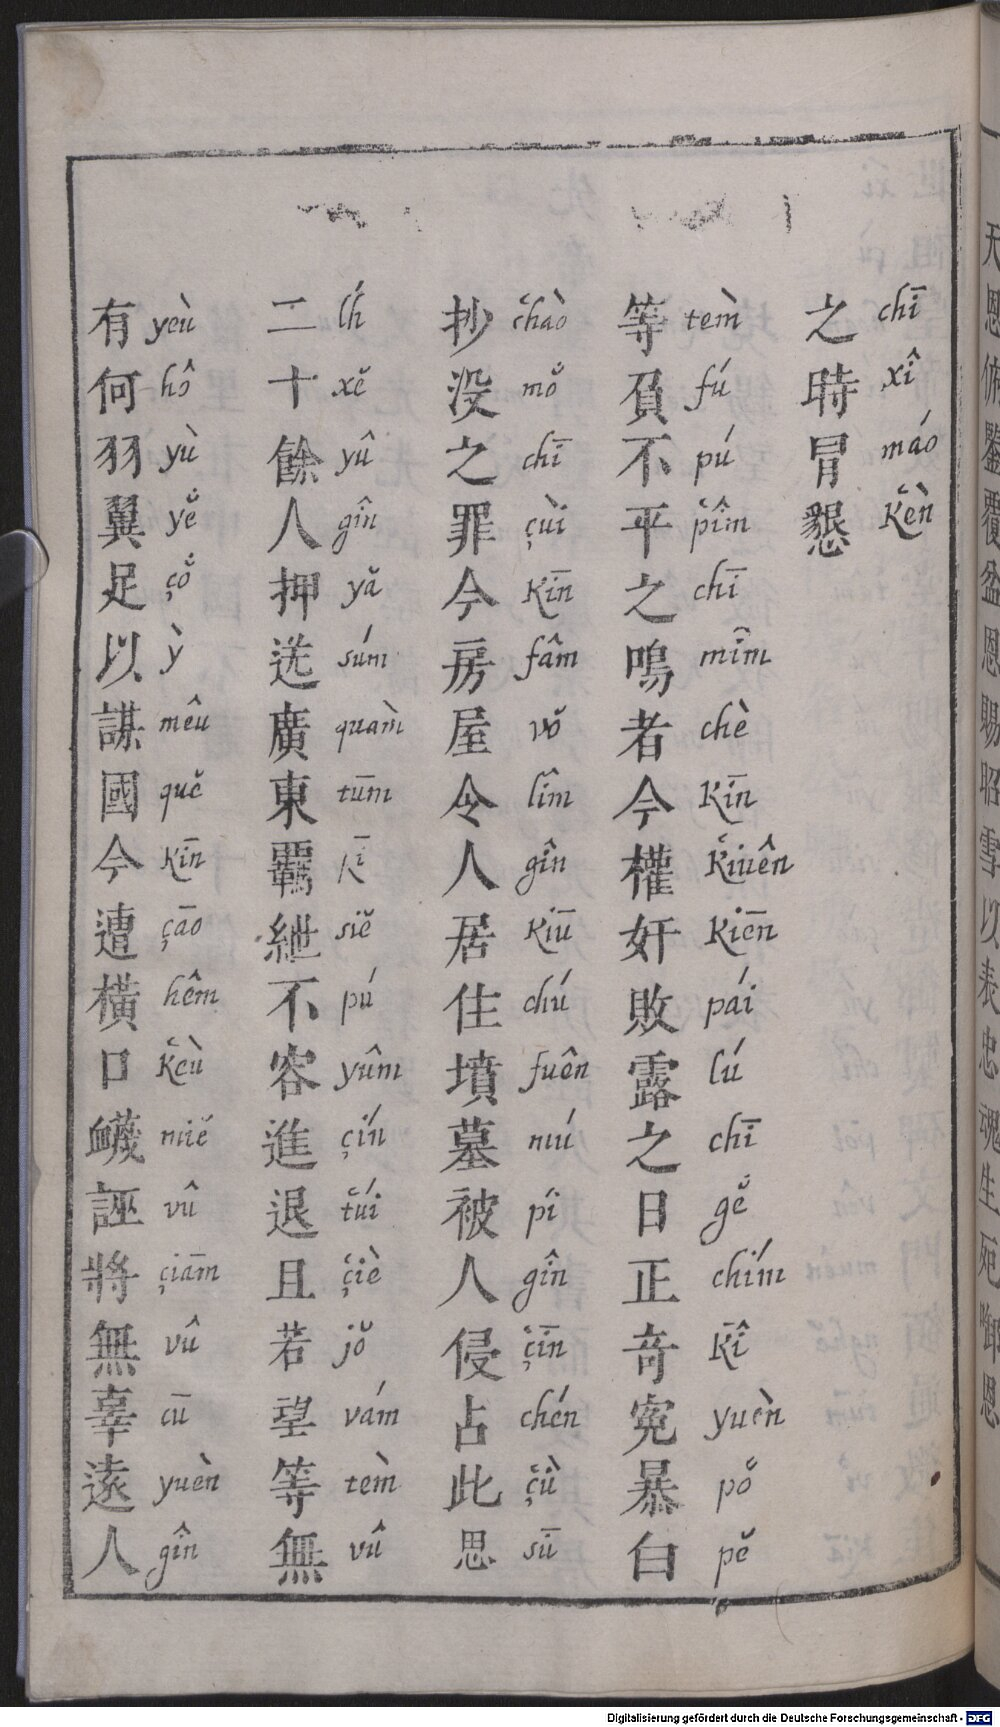 有何羽翼足以謀國今遭橫口衊誣將無辜遠人
yeù hô yù yĕ̇ çŏ̇ ỳ mêu quĕ kīn çāo hêm ǩeù miĕ vû çiām vû cū yuèn gîn
二十餘人押送廣東羈紲不容進退且若望等無
lh́ xĕ yû gîn yă súm quàm tūm kī siĕ pú yûm çín ťúi çiè jŏ vám tèm vû
抄没之罪今房屋令人居住墳墓被人侵占此思
chào mŏ̇ chī çùi kīn fâm vŏ lîm gîn kiū chú fuên mú pí gîn çīn chén çù sū
等負不平之鳴者今權奸敗露之日正奇寃暴白
tèm fú pú pîm chī mîm chè kīn kiuên kiēn pái lú chī gĕ̇ chím kî yuèn pŏ pĕ
之時冒懇
chī xî máo kèn
天恩俯鑒覆盆恩賜昭雪以表忠魂生死啣恩
Digitalisierung gefördert durch die Deutsche Forschungsgemeinschaft - DFG